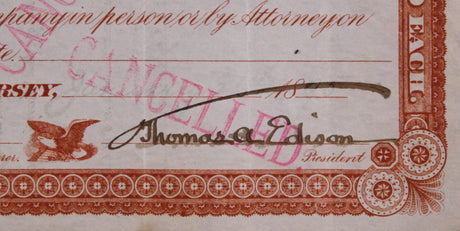 Company in person or by Attorney on
te.
CANCELLED
ERSEY, 18
Thomas A. Edison
rer. President
D EACH